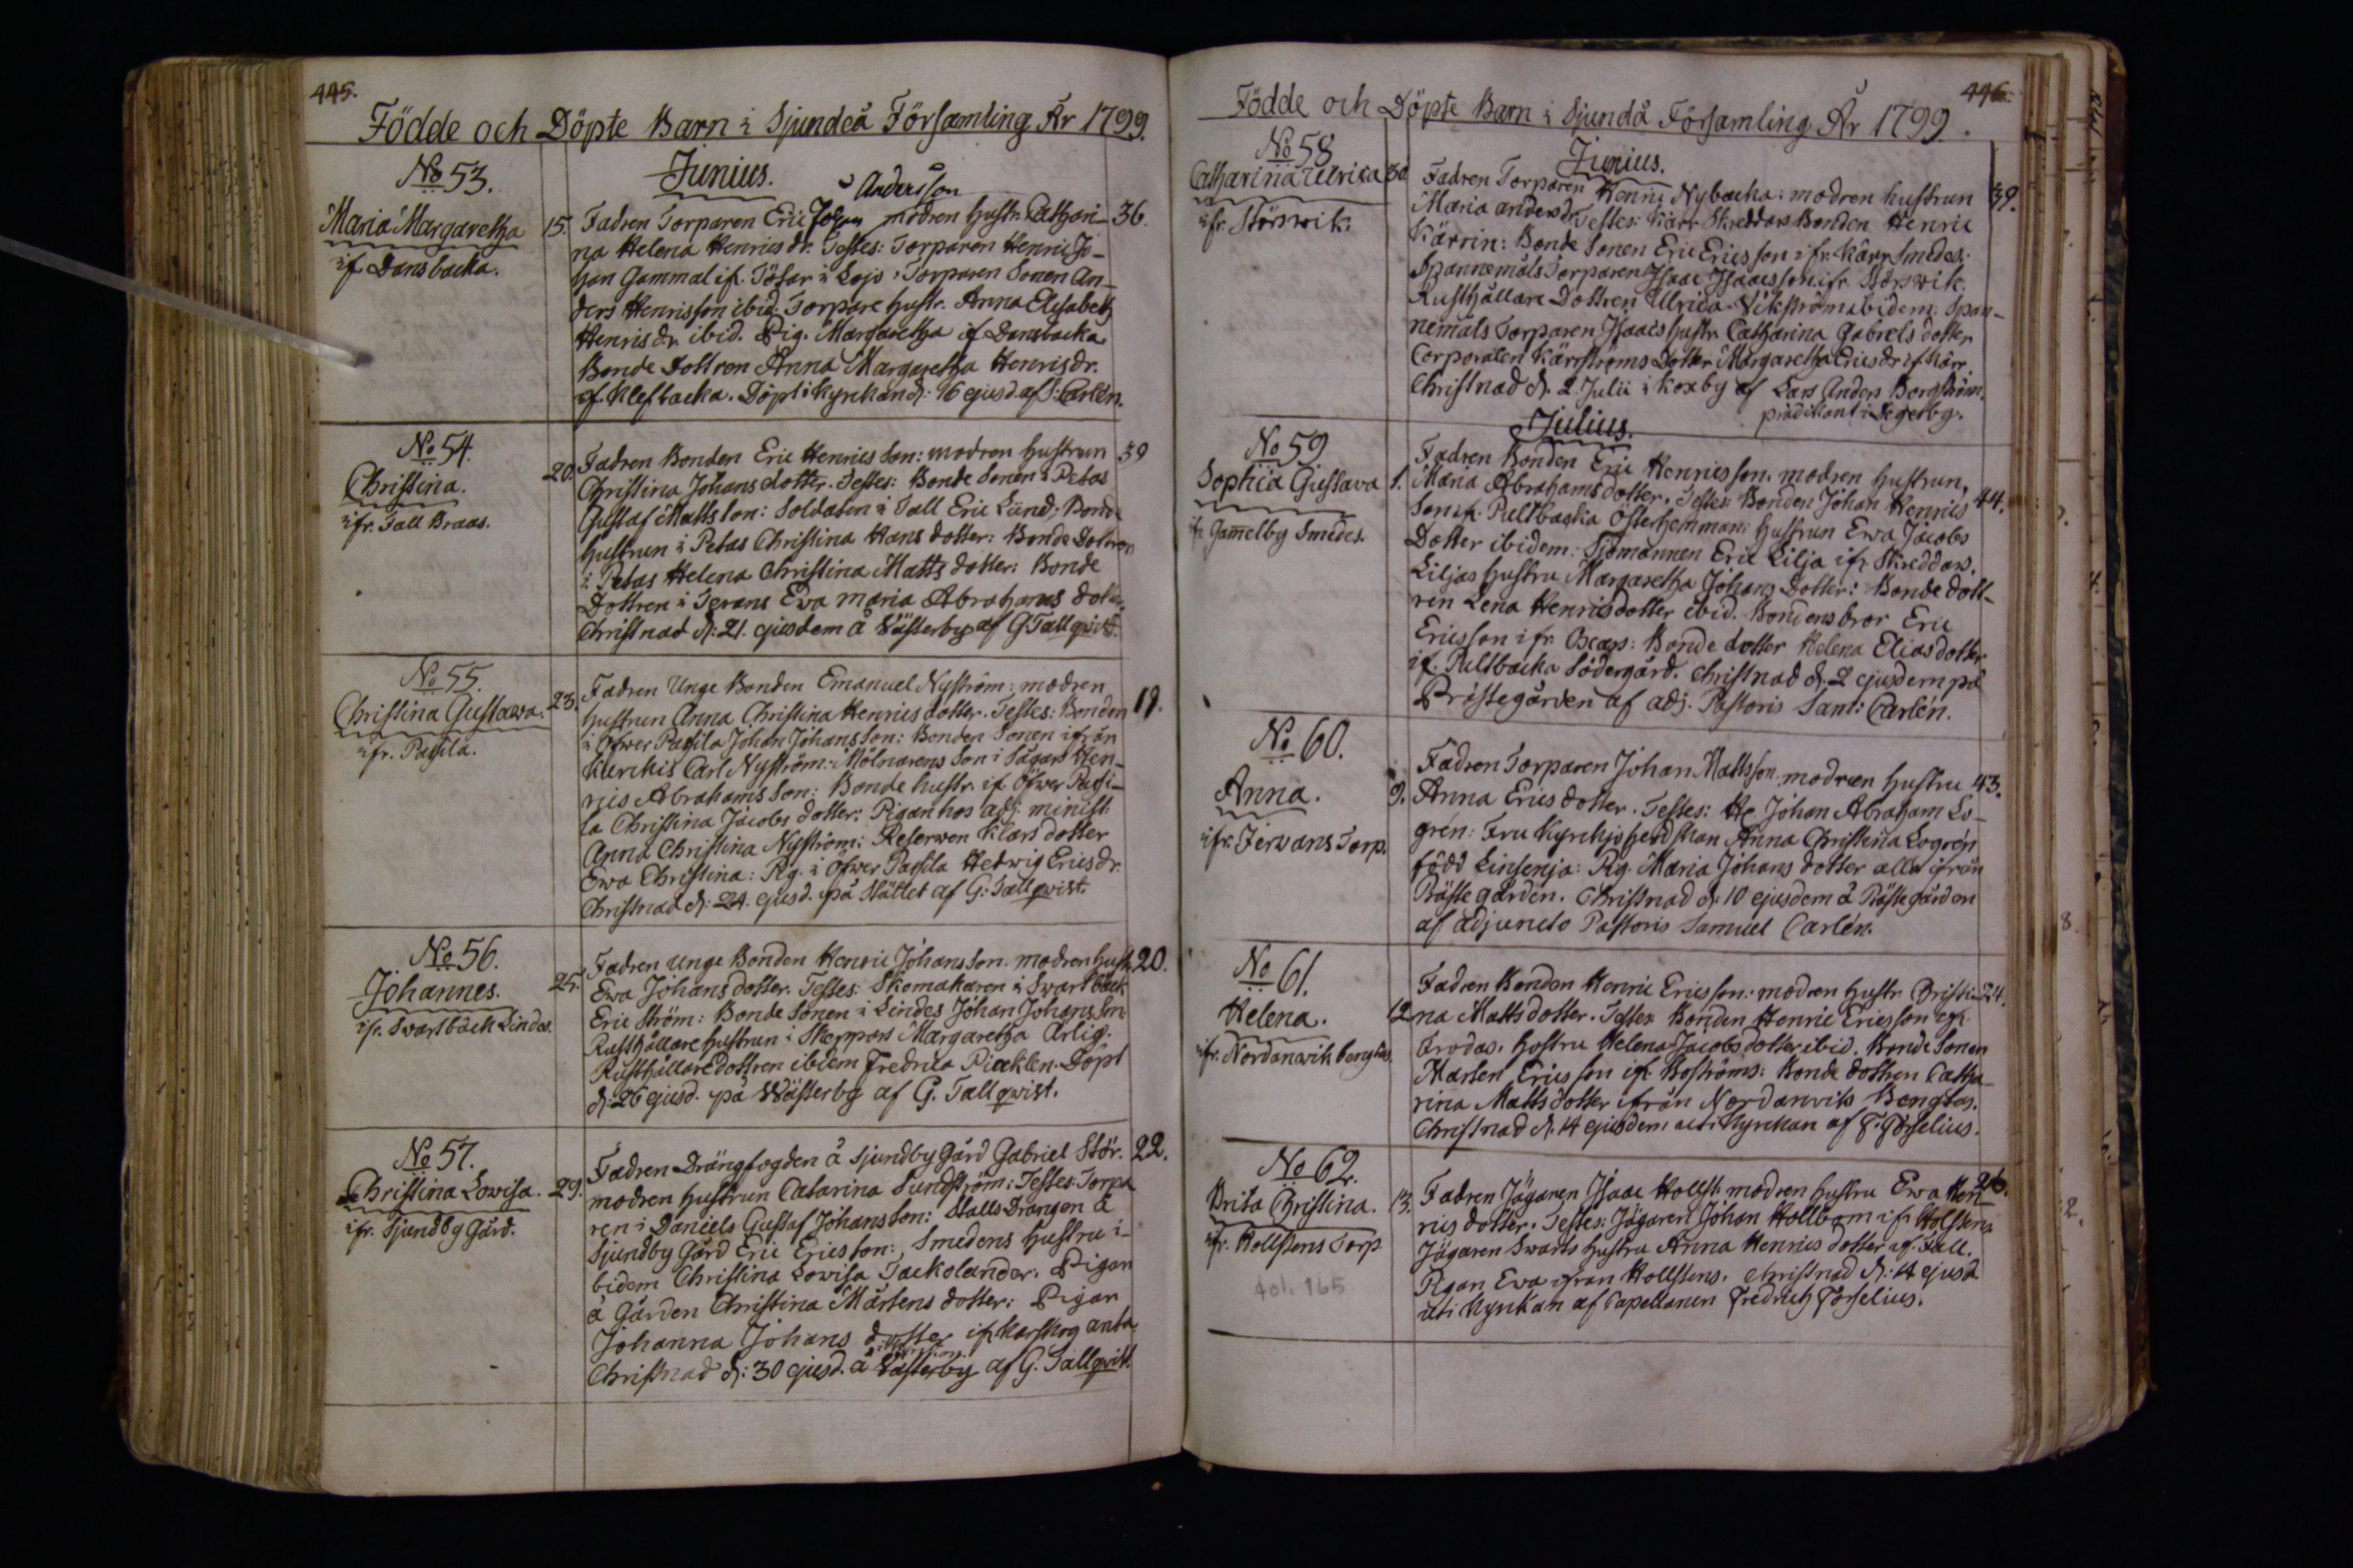 445.
Födde och Döpte Barn i Sjundeå Församling År 1799.
No 53.
Junius.
Andersson
Maria Margaretha
15.
Fadren Torparen Eric Johan modren hustr. Cathari- 36.
if Dansbacka.
na Helena Henricsdr. Testes: Torparen Henric Jo-
han Gammal if. Tötar i Lojo, Torparen Sonen An-
ders Henricsson ibid: Torpare hustr. Anna Elisabeth
Henrisdr. ibid. Pig. Margaretha if Dansbacka.
Bonde Dottren Anna Margaretha Henrisdr.
if. Klefbacka. Döpt i kyrckan d: 16 ejusd. af S: Carlén.
No 54.
Christina.
ifr. Tall Braas.
20.
Fadren Bonden Eric Henricsson: modren hustrun 39
Christina Johansdotter. Testes: Bonde Sonen i Petas
Gustaf Mattsson: Soldaten i Tall Eric Lund: Bonde
hustrun i Petas Christina Hansdotter: Bonde Dottren
i Petas Helena Christina Mattsdotter: Bonde
Dottren i Terans Ewa Maria Abrahams dotter.
Christnad d: 21. ejusdem å Wästerby af G Tallqwist.
No 55.
Christina Gustawa.
ifr. Pasila.
23.
Fadren Unge Bonden Emanuel Nyström: modren
hustrun Anna Christina Henricsdotter. Testes: Bonden 19.
i Öfwer Pasila Johan Johansson: Bonden Sonen ifrån
Kurckis Carl Nyström: Mölnarens Son i Sågars Hen-
rics Abrahamsson: Bonde hustr. if Öfwer Pasi-
la Christina Jacobsdotter: Pigan hos adj: minist:
Anna Christina Nyström: Reserwen Klars dotter
Ewa Christina: Pig. i Öfwer Pasila Hedwig Ericsdr.
Christnad d: 24. ejusd. på Stället af G: Tallqwist.
No 56.
Johannes.
ifr. Swartbäck Lindes.
25.
Fadren unge Bonden Henric Johansson. modren hustr. 20.
Ewa Johansdotter. Testes: Skomakaren i Swartbäck
Eric Ström: Bonde Sonen i Lindes Johan Johansson
Rusthållare hustrun i Skeppars Margaretha Arlig:
Rusthållare dottren ibidem Fredrica Döpt
d: 26 ejusd. på Wästerby af G. Tallqwist.
No 57.
Christina Lowisa.
ifr. Sjundby Gård.
29.
Fadren Drängfogden å Sjundby Gård Gabriel Stör. 22.
modren hustrun Catarina Sundström: Testes: Torpa
ren i Daniels Gustaf Johansson: Stalls Drängen å
Sjundby Gård Eric Ericsson: Smedens hustru i-
bidem Christina Lowisa Tackolander. Pigan
å Gården Christina Mårtensdotter: Pigan
Johanna Johansdotter if. Karskog
Christnad d: 30 ejusd. å Wästerby af G. Tallqwist.
446.
Födde och Döpte Barn i Sjundå Församling År 1799.
No 58
Junius.
Catharina Ulrica
ifr. Störswik.
30
Fadren Torparen Henric Nybacka: modren hustrun 39.
Maria andersdr. Testes: Kärr Skreddars Bonden Henric
Kärrin: Bonde Sonen Eric Ericsson ifr. Kärr Smedes:
Spannemåls Torparen Isaac Isaacsson ifr. Störswik.
Rusthållare Dottren Ulrica Wikström ibidem: Span-
nemåls Torparen Isaacs hustr. Catharina Gabrels dotter
Corporalen Kärrströms Dotter Margaretha Ericsdr. if. Kärr.
Christnad d. 2 Julii i Koxby af Lars Anders Borgström.
prädikant i Degerby.
No 59
Julius.
Sophia Gustava
if. Gamelby Smedes.
1.
Fadren Bonden Eric Henricsson. modren hustrun,
Maria Abrahamsdotter. Testes: Bonden Johan Henrics 44.
Son if. Pultbacka Österhemman: hustrun Ewa Jacobs
Dotter ibidem: Sjömannen Eric Lilja ifr. Skreddars.
Liljas hustru Margaretha Johans Dotter: Bonde dott-
ren Lena Henrisdotter ibid. Bondens bror Eric
Ericsson ifr. Bonde dotter Helena Eliasdotter
if. Pultbacka Södergård. Christnad d. 2 ejusdem på
Prästegården af adj. Pastoris Sam: Carlén.
No 60.
Anna.
ifr. Jerwans Torp.
9.
Fadren Torparen Johan Mattsson modren hustru 43.
Anna Ericsdotter. Testes: Hr Johan Abraham Lo-
grén: Fru Kyrckjoherdskan Anna Christina Logrén
född Linsenja: Pig. Maria Johans dotter alla ifrån
Prästegården. Christnad d: 10 ejusdem å Prästegården
af adjuncto Pastoris Samuel Carlén.
No 61.
Helena.
ifr. Nordanwik bengtas
12
Fadren Bonden Henric Ericsson: modren hustr. Cristi- 24.
na Mattsdotter. Testes: Bonden Henric Ericsson if.
Frodas. hustru Helena Jacobsdotter ibid. Bonde Sonen
Mårten Ericsson if. Boströms: Bonde dottren Catha-
rina Mattsdotter ifrån Nordanwik Bengtas.
Christnad d. 14 ejusdem uti kyrckan af F. Forselius.
No 62.
Brita Christina.
ifr. Hollstens Torp.
fol. 165
13.
Fadren Jägaren Isaac Hollst. modren hustru Ewa Hen 26.
rics dotter. Testes: Jägaren Johan Hollbom ifr Holstens
Jägaren Swarts hustru Anna Henrics dotter if. Fall.
Pigan Ewa ifrån Hollstens. Christnad d: 14 ejusd
uti kyrckan af Capellanen Fredrich Forselius.